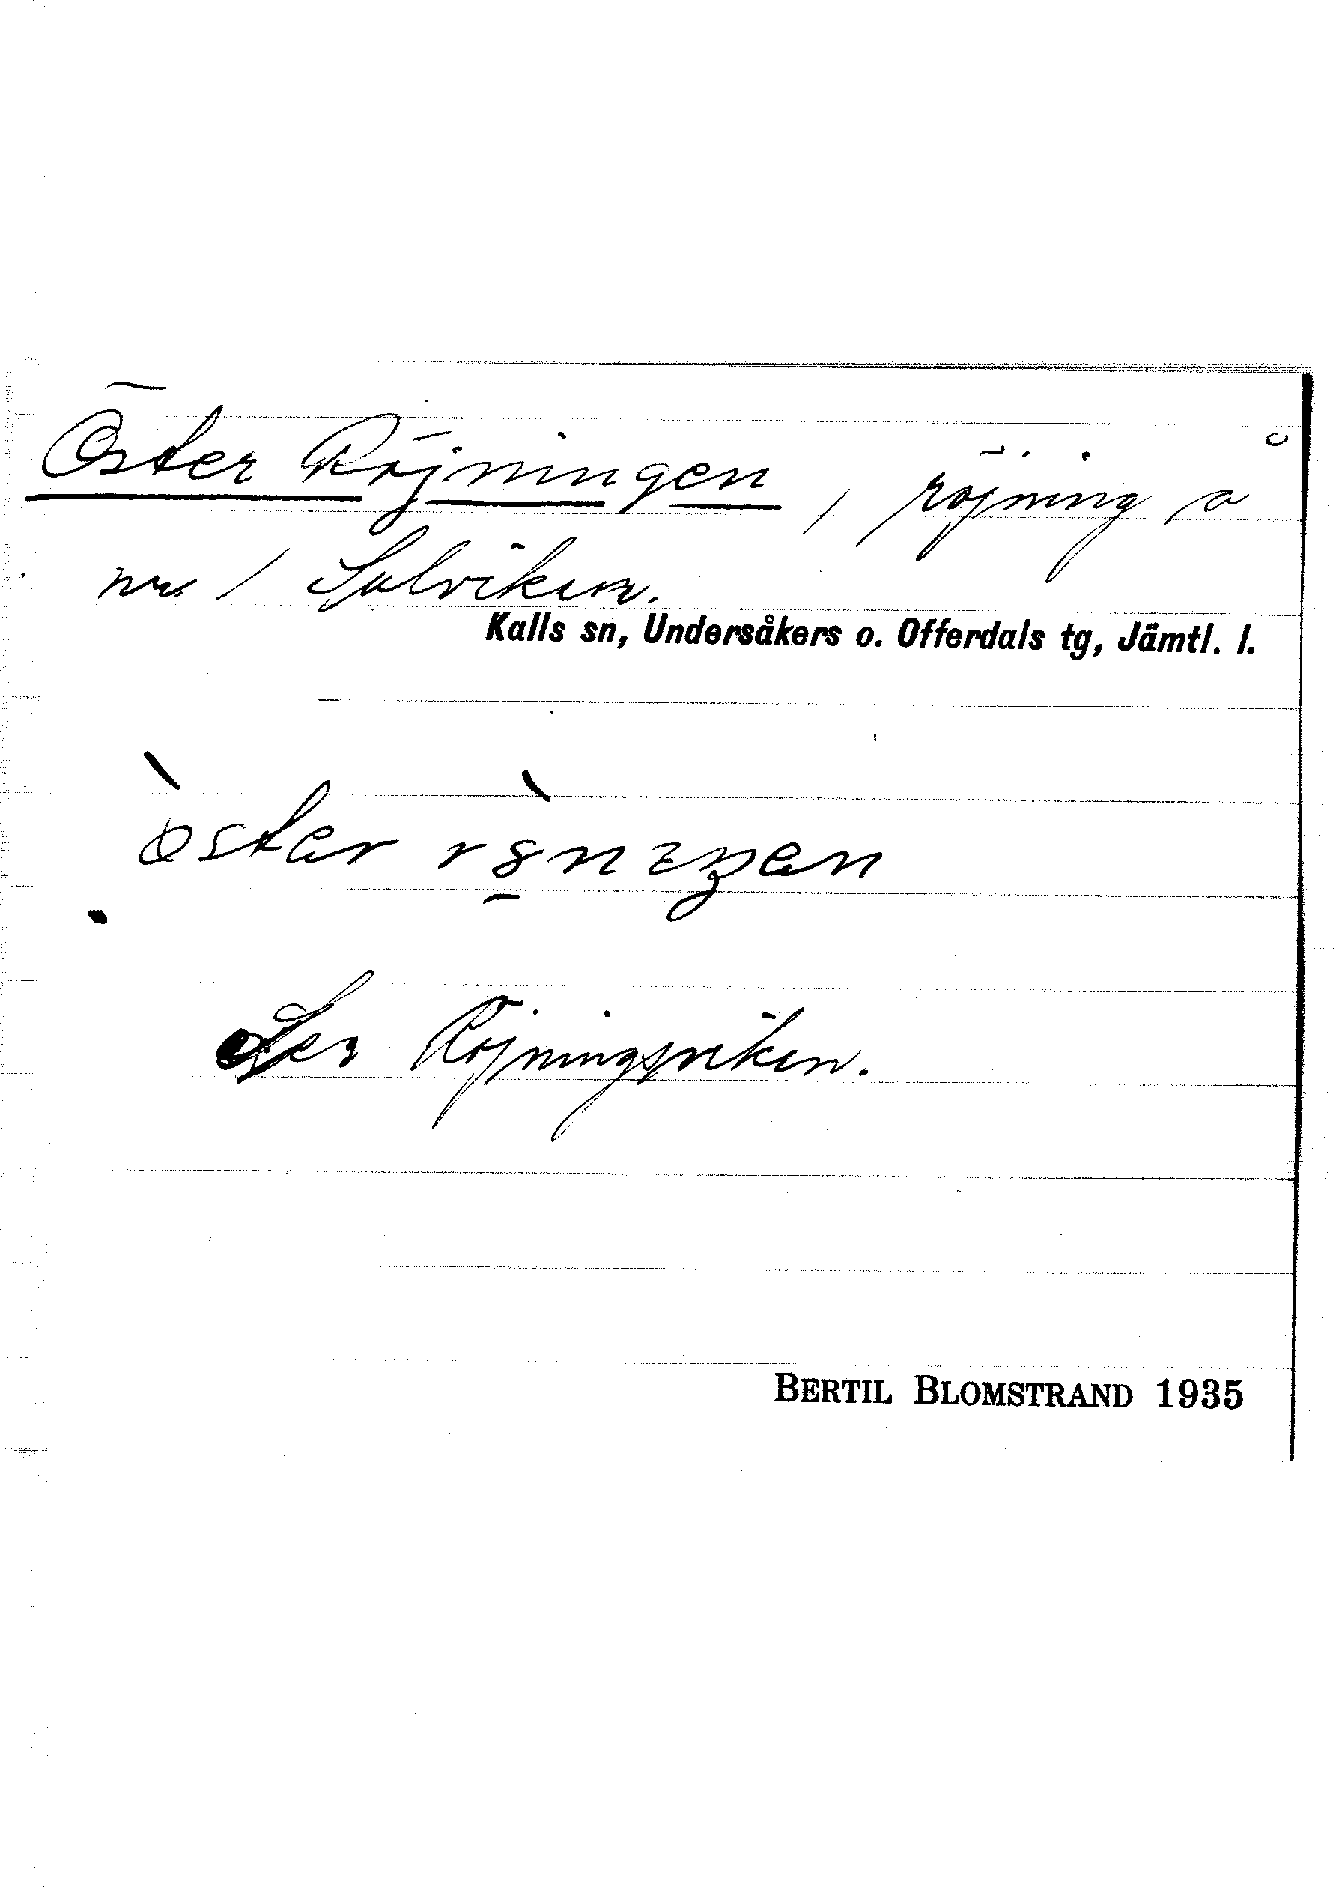 Öster Röjningen, röjning å
nr 1 Solviken.
Kalls sn, Undersåkers o. Offerdals tg, Jämtl. l.
Röjningsviken.
BERTIL BLOMSTRAND 1935